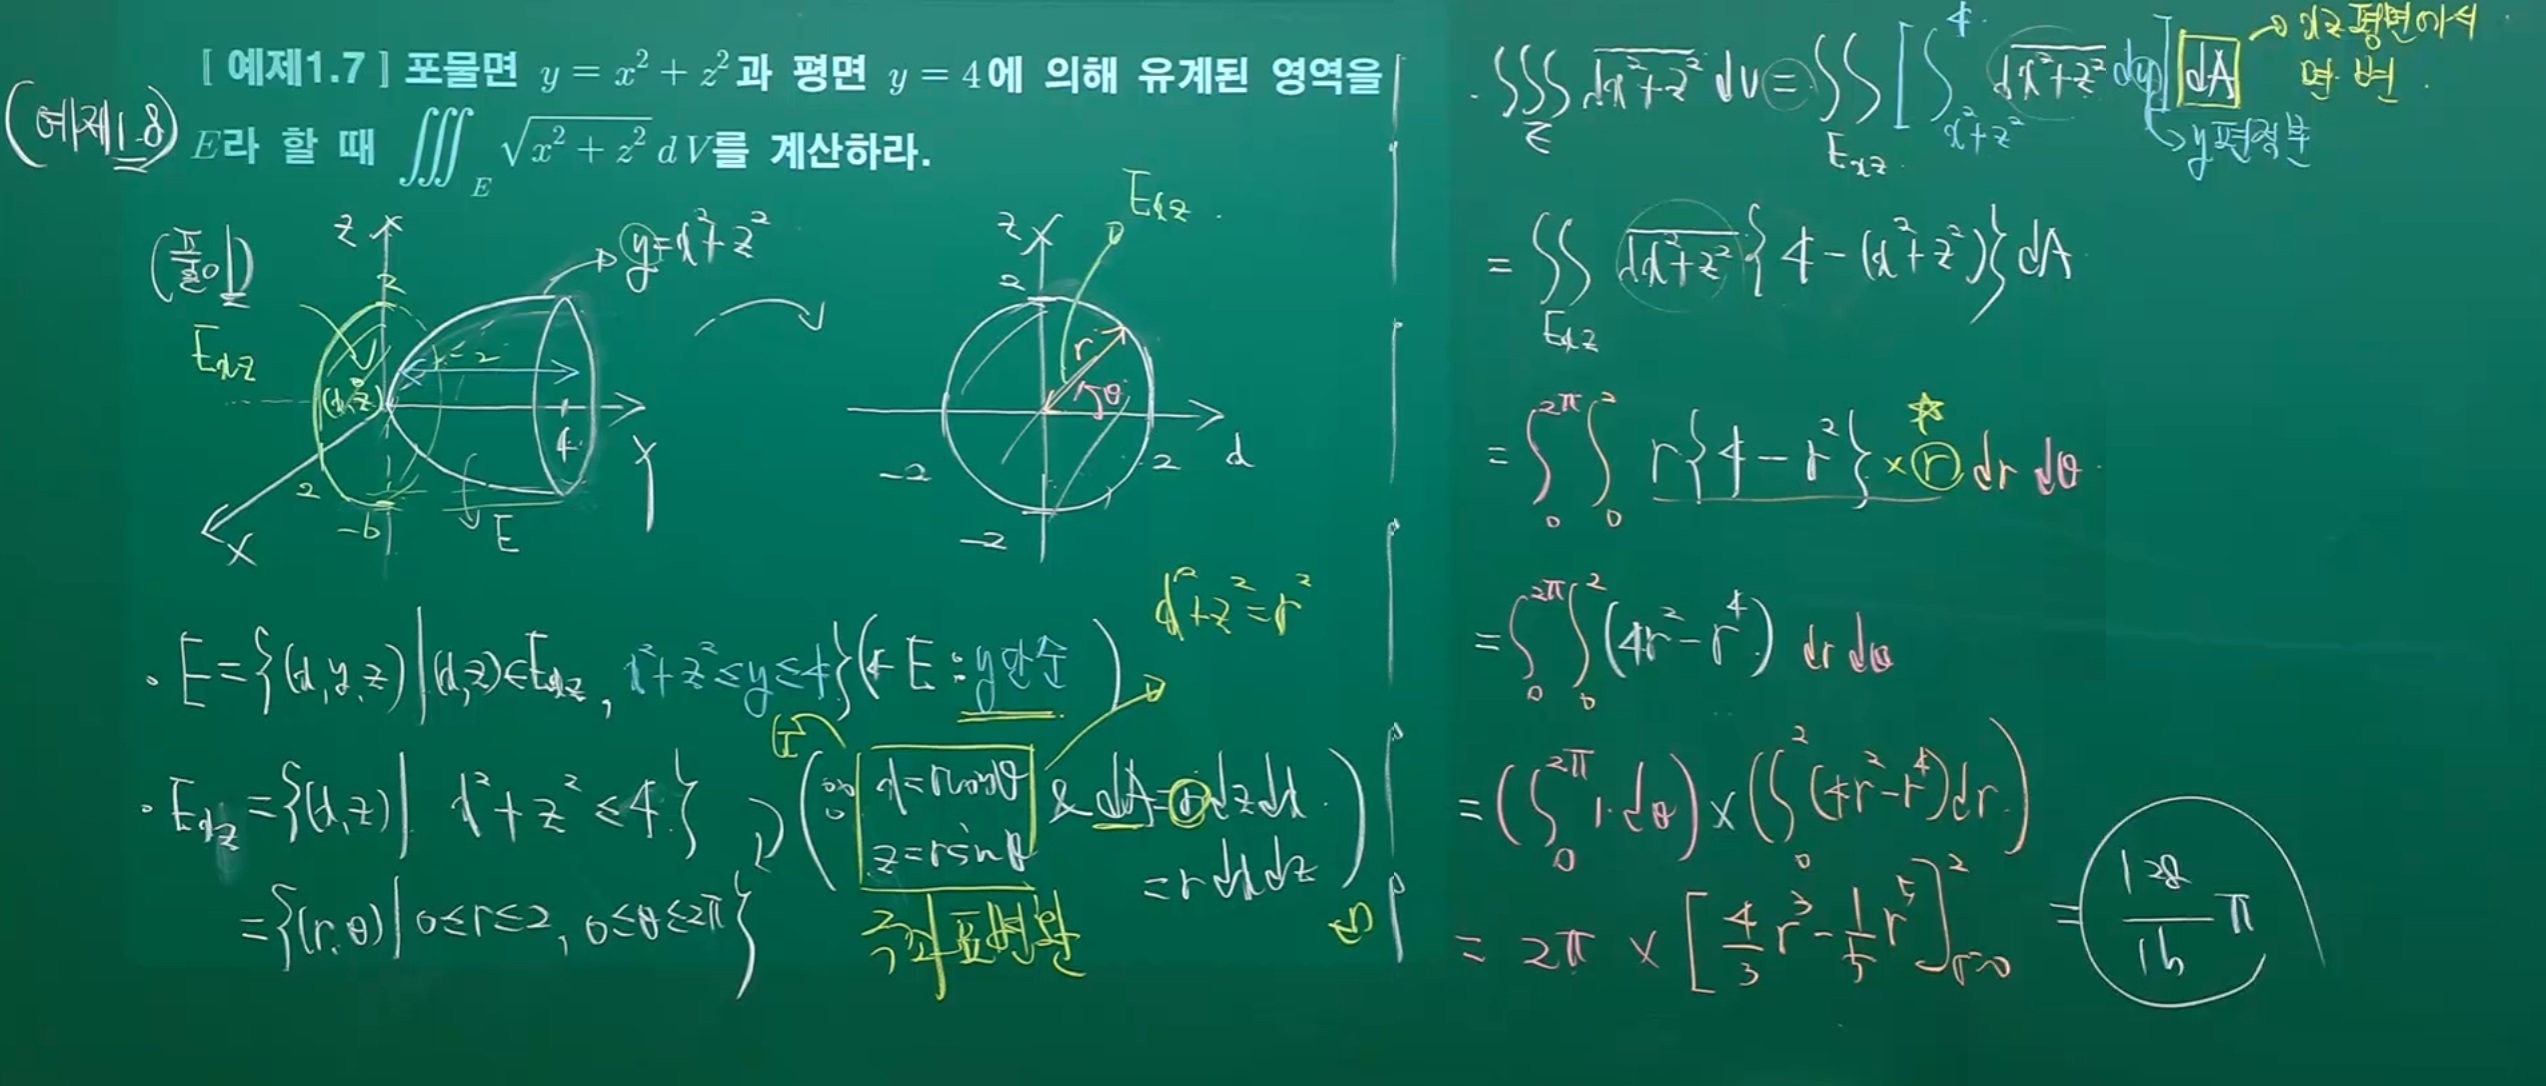 [ 예제1.7 ] 포물면 y = x² + z²과 평면 y = 4에 의해 유계된 영역을
(예제1-8)
E라 할 때 ∭_E √(x² + z²) dV를 계산하라.
(풀이)
z
2
y=x²+z²
E_xz
(x,z)
4
y
2
x
-2
E
z
E_xz
2
r
θ
-2
2
x
-2
x²+z²=r²
• E={(x,y,z)|(x,z)∈E_xz, x²+z²≤y≤4} (← E : y단순)
• E_xz={(x,z)| x²+z²≤4}
={(r,θ)|0≤r≤2, 0≤θ≤2π}
(∵ x=rcosθ & dA=r dzdx
z=rsinθ =r dxdz)
극좌표변환
• ∭_E √(x²+z²) dV = ∬_E_xz [∫_{x²+z²}^4 √(x²+z²) dy] dA
→ xz평면에서
면적변
→ y편적분
= ∬_E_xz √(x²+z²) {4-(x²+z²)} dA
= ∫_0^{2π} ∫_0^2 r{4-r²} × r dr dθ
= ∫_0^{2π} ∫_0^2 (4r²-r⁴) dr dθ
= (∫_0^{2π} 1·dθ) × (∫_0^2 (4r²-r⁴) dr)
= 2π × [4/3 r³ - 1/5 r⁵]_{r=0}^2 = 128/15 π